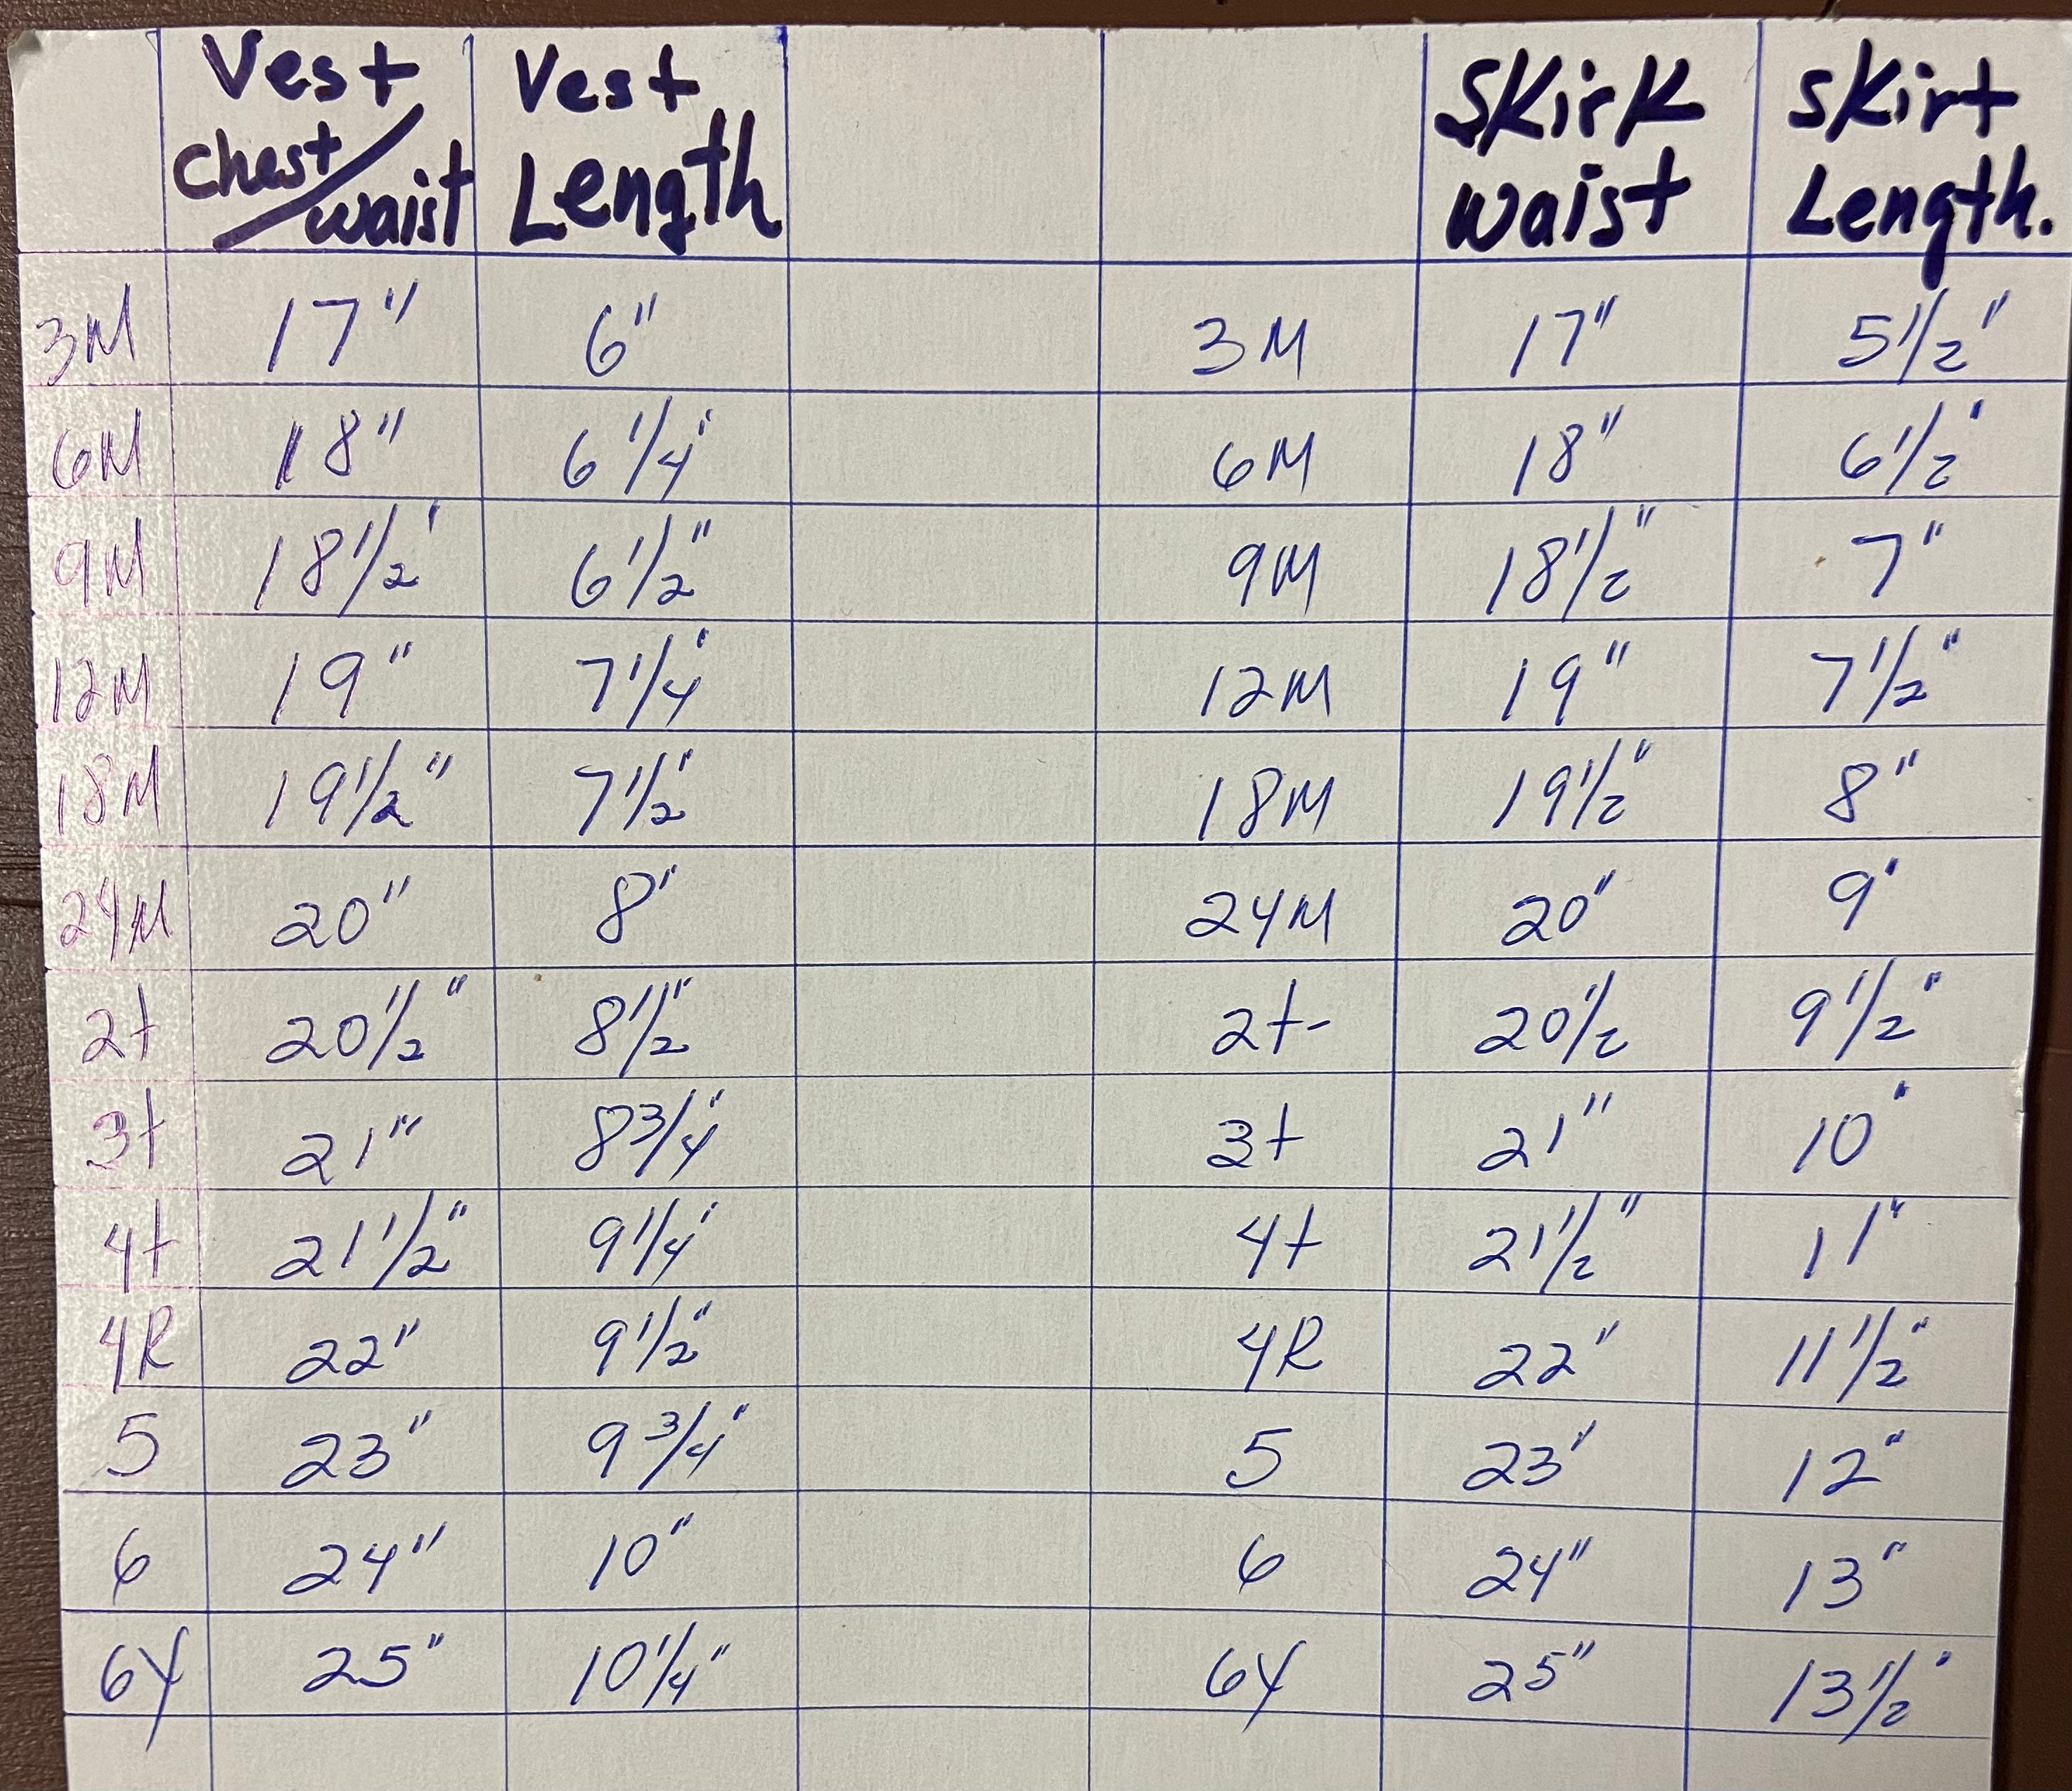 Vest chest/waist Vest Length Skirk waist Skirt Length.
3M 17" 6" 3M 17" 5 1/2'
6M 18" 6 1/4" 6M 18" 6 1/2"
9M 18 1/2' 6 1/2" 9M 18 1/2" 7"
12M 19" 7 1/4" 12M 19" 7 1/2"
18M 19 1/2" 7 1/2" 18M 19 1/2" 8"
24M 20" 8" 24M 20" 9"
2t 20 1/2" 8 1/2" 2t- 20 1/2 9 1/2"
3t 21" 8 3/4" 3t 21" 10"
4t 21 1/2" 9 1/4" 4t 21 1/2" 11"
4R 22" 9 1/2" 4R 22" 11 1/2"
5 23" 9 3/4" 5 23" 12"
6 24" 10" 6 24" 13"
6Y 25" 10 1/4" 6Y 25" 13 1/2"